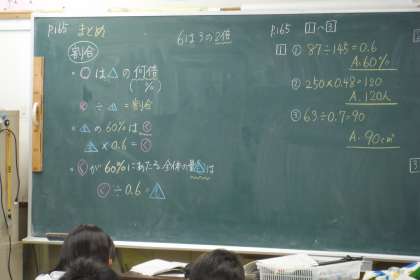 P.165 まとめ
割合
6は3の2倍
・○は△の何倍
( %)
く ÷ △ = 割合
・△の60%はく
△ × 0.6 = く
・くが60%にあたる全体の量△は
く ÷ 0.6 = △
P.165 1~3
1 ① 87÷145=0.6
A.60%
② 250×0.48=120
A.120人
③ 63÷0.7=90
A.90cm²
3